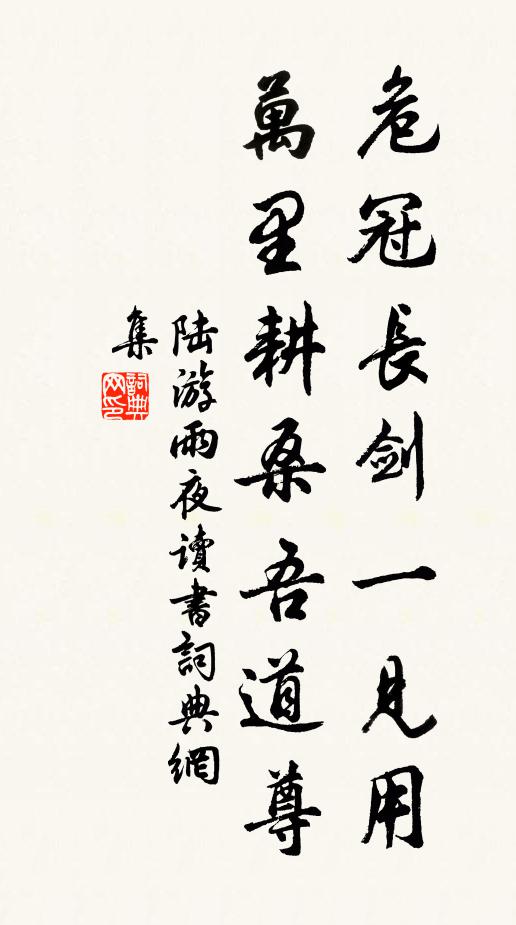 危冠長剑一見用
萬里耕桑吾道尊
陆游雨夜读書詞典網
集
詞典
网印